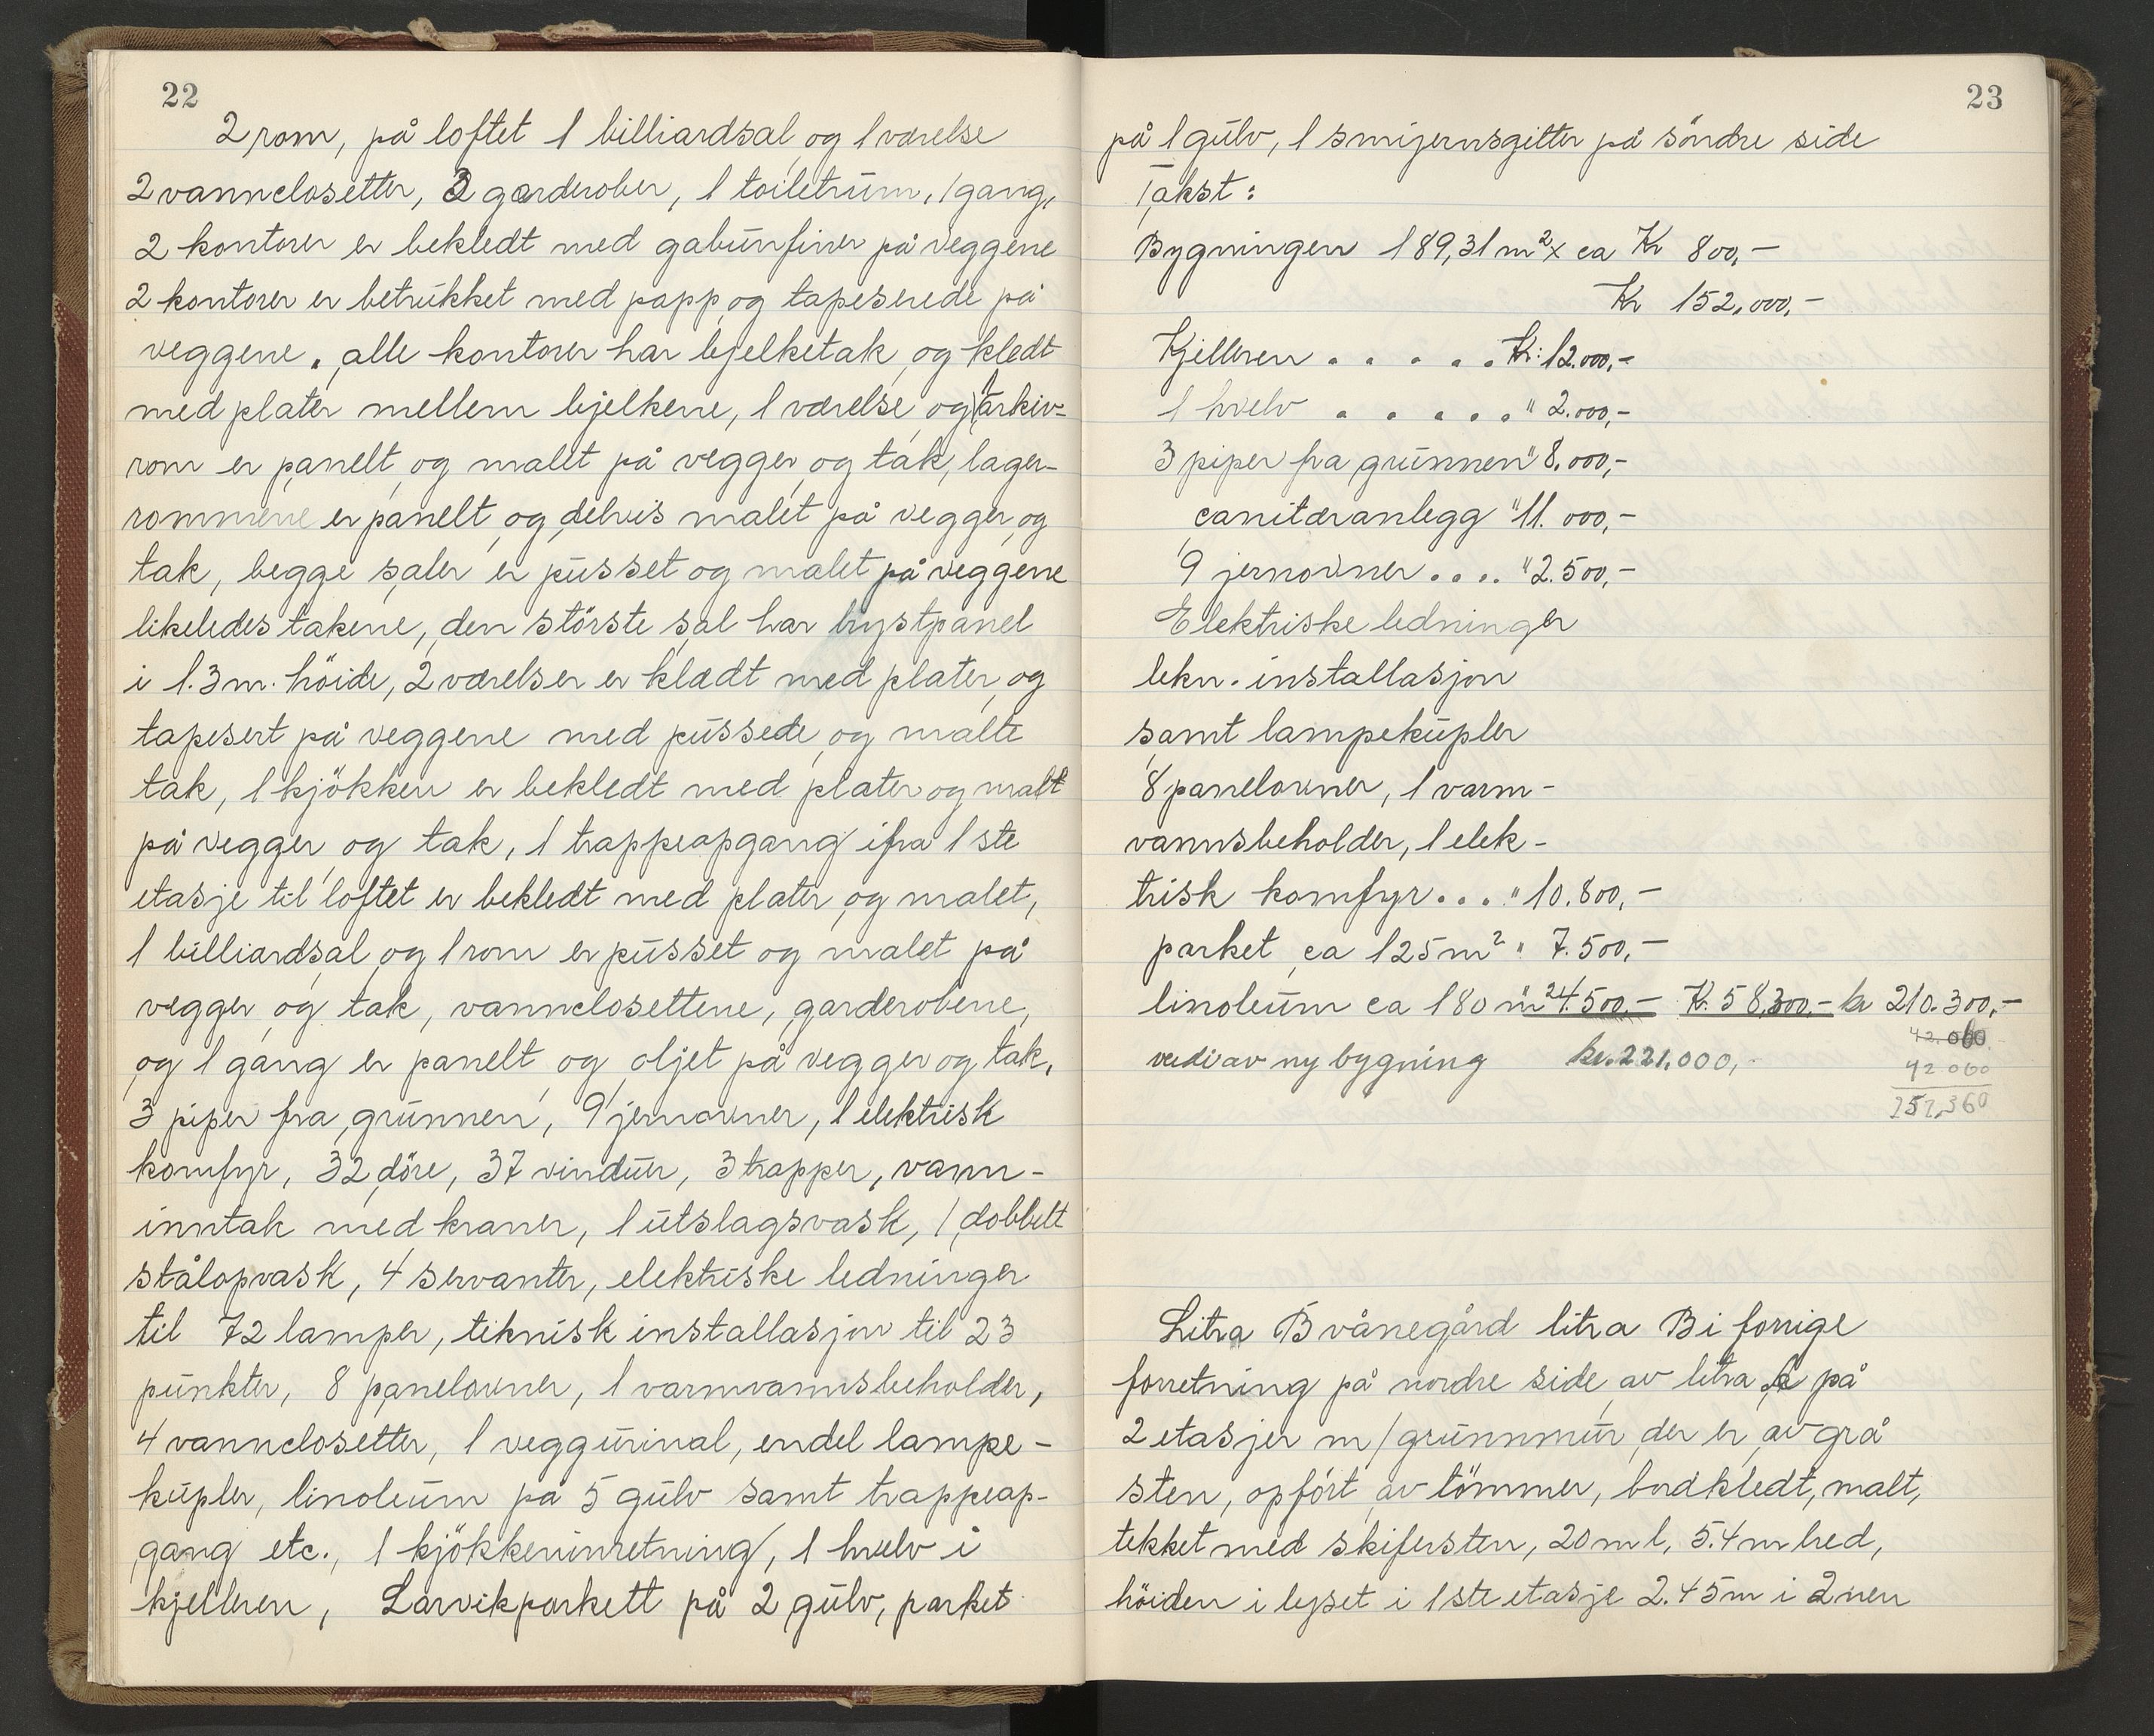 22
2 rom, på loftet 1 billiardsal og 1 værelse
2 vannclosetter, 2 garderober, 1 toiletrum, 1 gang,
2 kontorer er bekledt med gabunfiner på veggene
2 kontorer er betrukket med papp og tapeserede på
veggene. alle kontorer har bjelketak og kledt
med plater mellem bjelkene, 1 værelse og 1 arkiv-
rom er panelt og malt på vegger og tak, lager-
rommene er panelt og delvis malet på vegger og
tak, begge saler er pusset og malet på veggene
likeledes takene, den störste sal har brystpanel
i 1.3 m. höide, 2 værelser er klædt med plater og
tapesert på veggene med pussede og malte
tak, 1 kjökken er bekledt med plater og malt
på vegger og tak, 1 trappeopgang ifra 1ste
etasje til loftet er bekledt med plater og malet,
1 billiardsal og 1 rom er pusset og malet på
vegger og tak, vannclosettene, garderobene,
og 1 gang er panelt og oljet på vegger og tak,
3 piper fra grunnen, 9 jernovner, 1 elektrisk
komfyr, 32 döre, 37 vinduer, 3 trapper, vann-
inntak med kraner, 1 utslagsvask, 1 dobbelt
stålopvask, 4 servanter, elektriske ledninger
til 72 lamper, teknisk installasjon til 23
punkter, 8 panelovner, 1 varmvannsbeholder,
4 vannclosetter, 1 veggurinal, endel lampe-
kupler, linoleum på 5 gulv samt trappeop-
gang etc., 1 kjökkeninnretning, 1 hvelv i
kjelleren, Larvikparkett på 2 gulv, parket
23
på 1 gulv, 1 smijernsgitter på söndre side
Takst:
Bygningen 189,31 m² x ca Kr 800,-
Kr 152.000,-
Kjelleren . . . . . Kr: 12.000,-
1 hvelv . . . . . " 2.000,-
3 piper fra grunnen " 8.000,-
sanitæranlegg " 11.000,-
9 jernovner . . . . " 2.500,-
Elektriske ledninger
tekn. installasjon
samt lampekupler
8 panelovner, 1 varm-
vannsbeholder, 1 elek-
trisk komfyr . . . " 10.800,-
parket ca 125 m² " 7.500,-
linoleum ca 180 m² 4.500,- Kr. 58.300,- kr 210.300,-
42.060
verdi av ny bygning kr. 221.000,-
42 060
252,360
Litra B vånegård litra B i forrige
forretning på nordre side av litra A på
2 etasjer m/grunnmur der er av grå
sten, opfört av tömmer, bordkledt, malt,
tekket med skifersten, 20 m l, 5.4 m bred,
höiden i lyset i 1ste etasje 2.45 m i 2nen